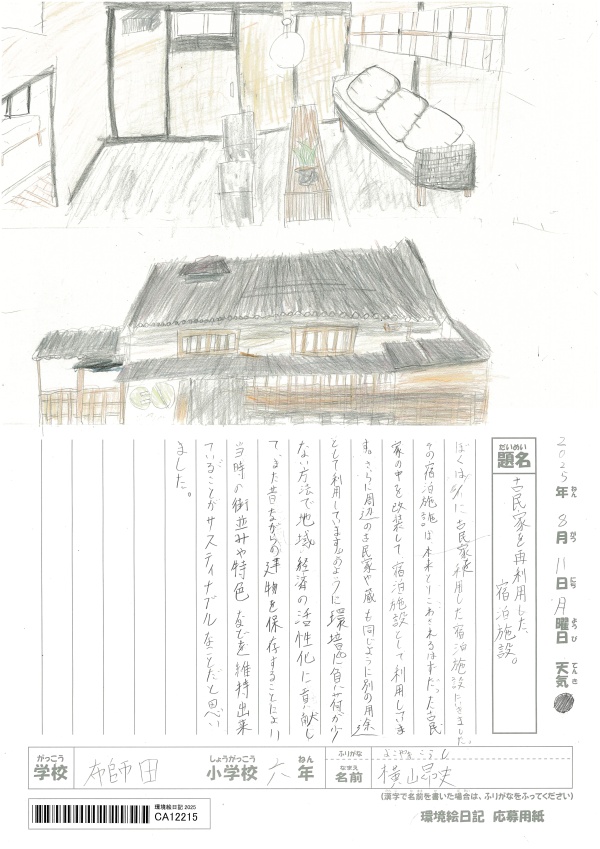 2025年8月11日月曜日 天気
ねん がつ にち ようび てんき
だいめい
題名
古民家を再利用した、
宿泊施設。
ぼくは8/1に古民家を利用した宿泊施設にきました。
その宿泊施設は本来とりこわされるはずだった古民
家の中を改装して宿泊施設として利用していま
す。さらに周辺の古民家や蔵も同じように別の用途
として利用しています。このように環境に負荷が少
ない方法で地域経済の活性化に貢献し
て、また昔ながらの建物を保存することにより
当時の街並みや特色などを維持出来
ていることがサスティナブルなことだと思い
ました。
がっこう
学校
布師田
しょうがっこう
小学校
六
ねん
年
ふりがな
なまえ
名前
横山
(漢字で名前を書いた場合は、ふりがなをふってください)
環境絵日記2025
CA12215
環境絵日記 応募用紙